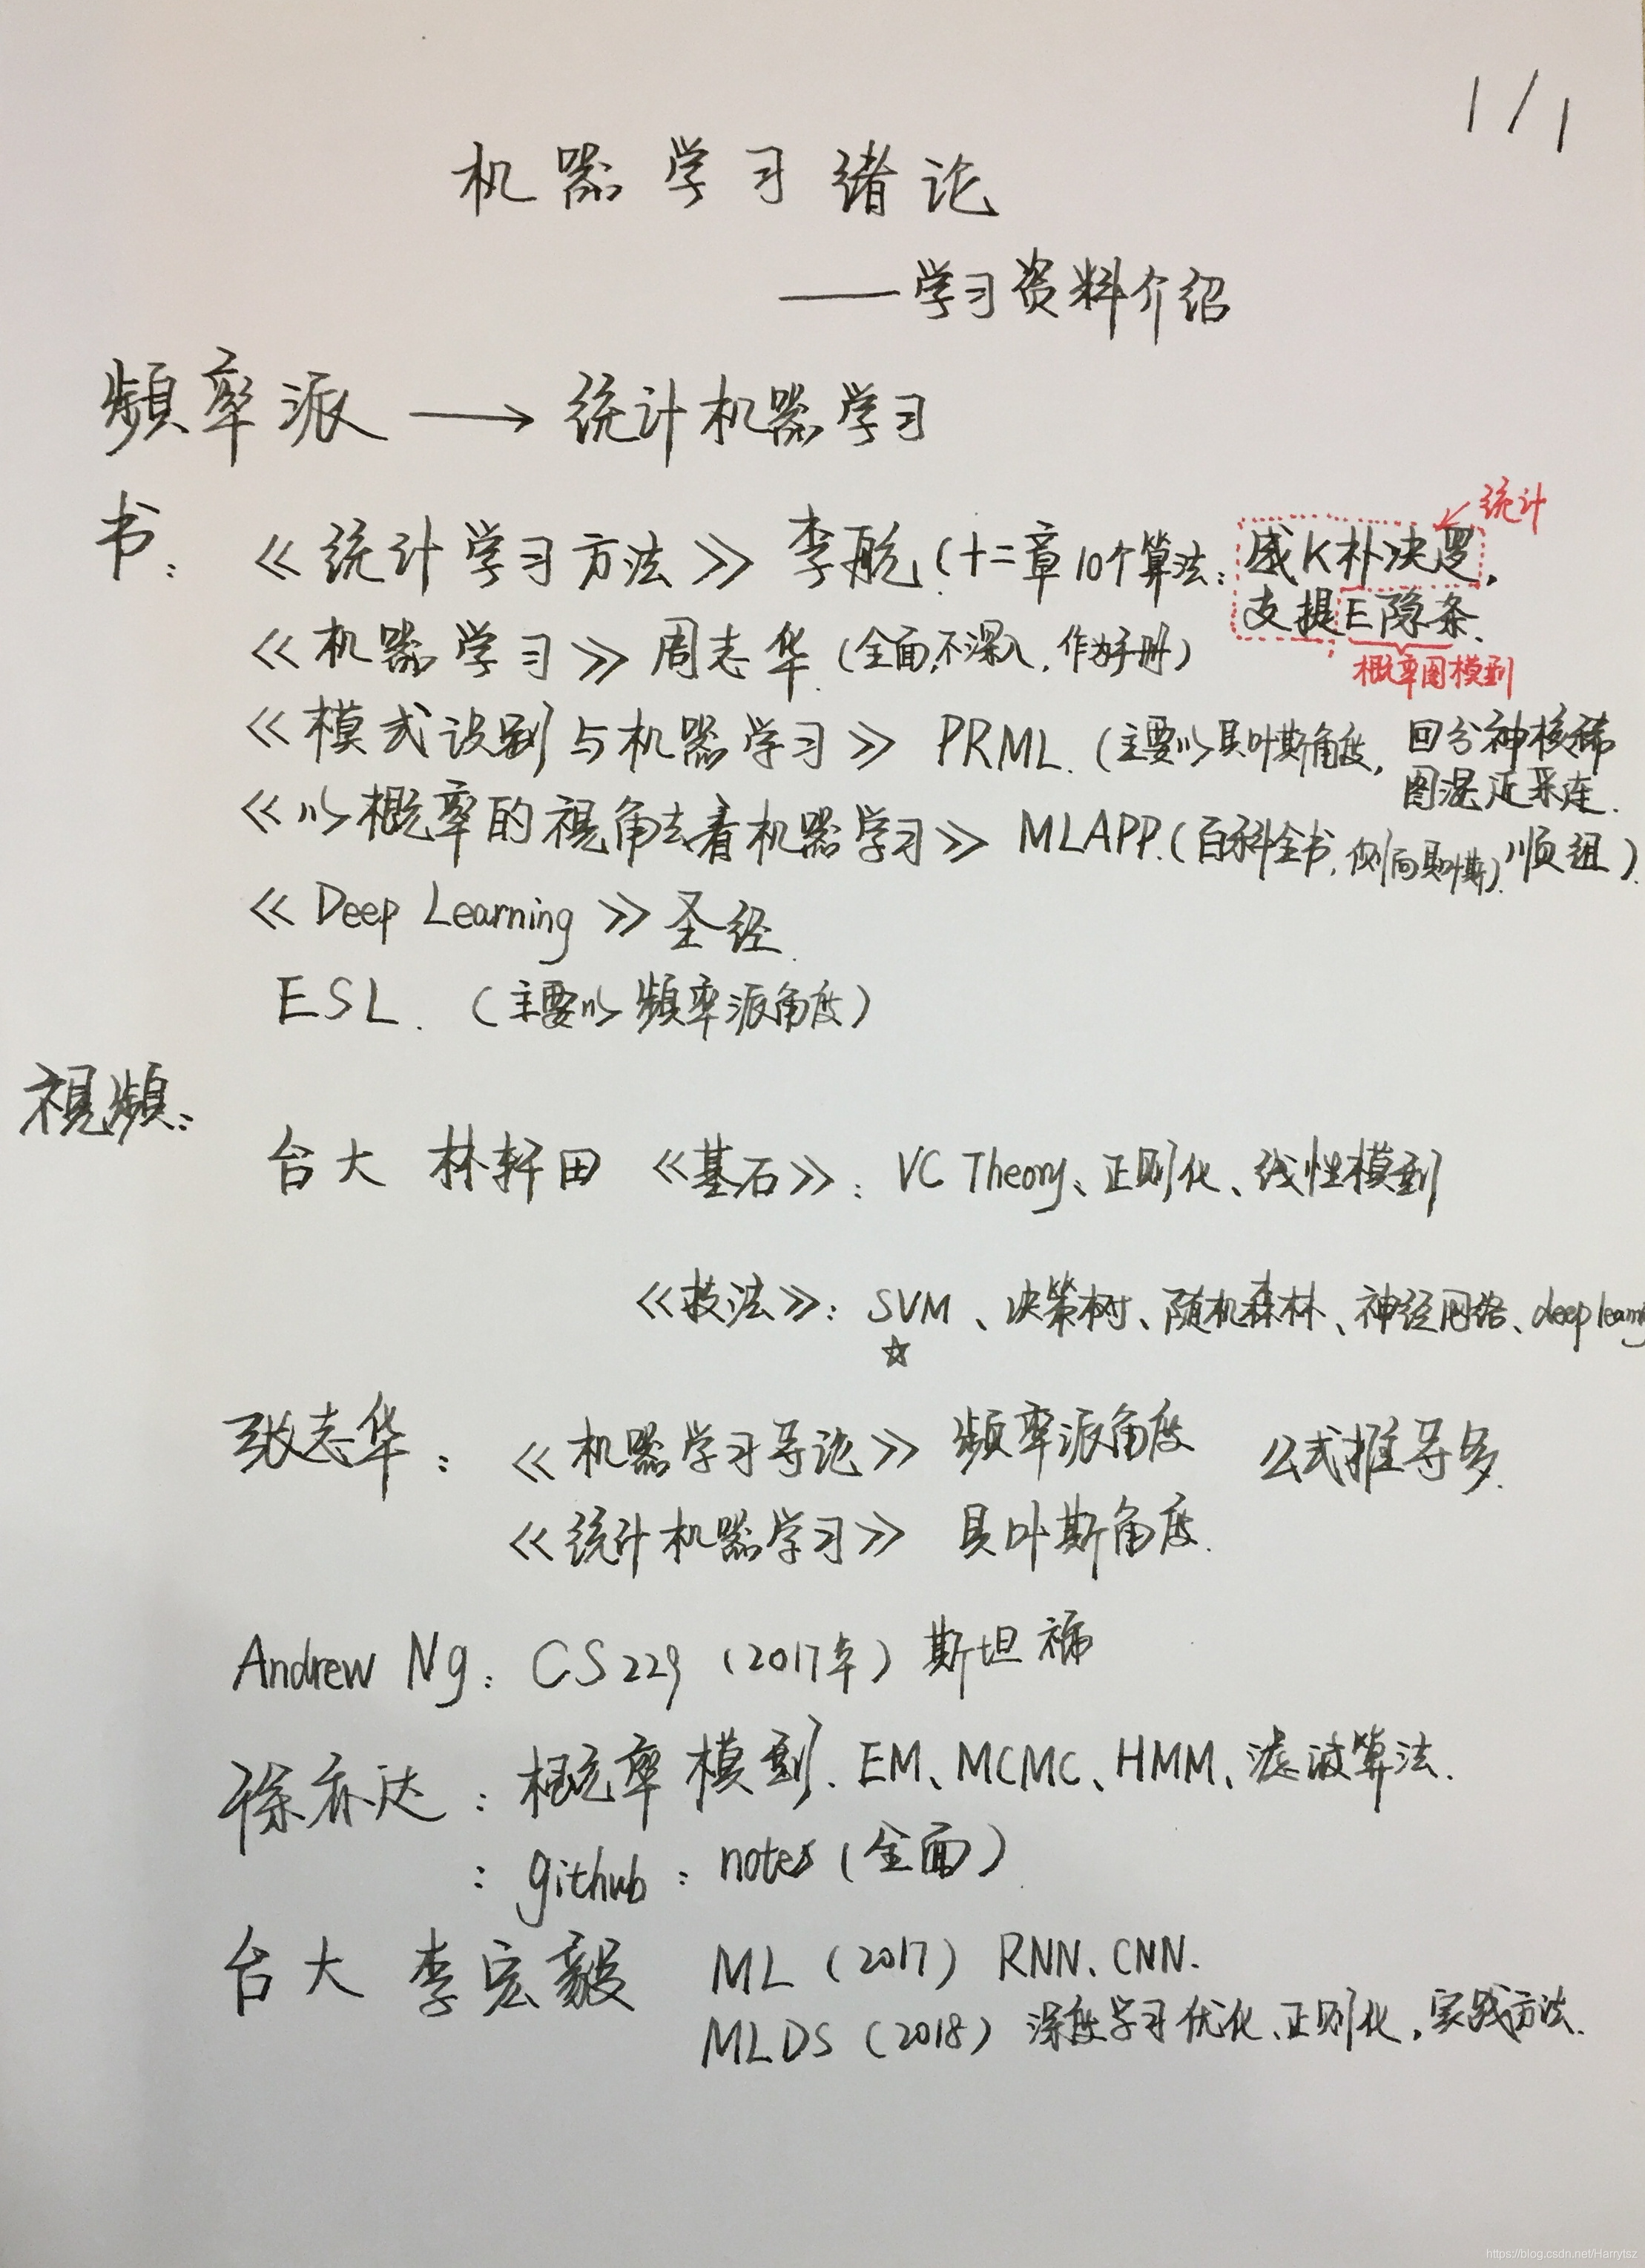 1/1
机器学习绪论
——学习资料介绍
频率派 → 统计机器学习
统计
书: 《统计学习方法》李航(十二章10个算法: 感K朴决逻,
支提E隐条.
《机器学习》周志华.(全面,不深入,作为手册)
概率图模型
《模式识别与机器学习》 PRML.(主要以贝叶斯角度, 回分神核稀
图混近采连.
《以概率的视角去看机器学习》 MLAPP.(百科全书,侧向贝叶斯) 顺组).
《Deep Learning》圣经.
ESL. (主要以频率派角度)
视频:
台大 林轩田 《基石》: VC Theory、正则化、线性模型
《技法》: SVM、决策树、随机森林、神经网络、deep learning
☆
张志华: 《机器学习导论》 频率派角度 公式推导多.
《统计机器学习》 贝叶斯角度.
Andrew Ng: CS229 (2017年) 斯坦福
徐亦达: 概率模型. EM、MCMC、HMM、滤波算法.
: github: notes(全面).
台大 李宏毅 ML (2017) RNN、CNN.
MLDS (2018) 深度学习优化、正则化,实践方法.
https://blog.csdn.net/Harrytsz